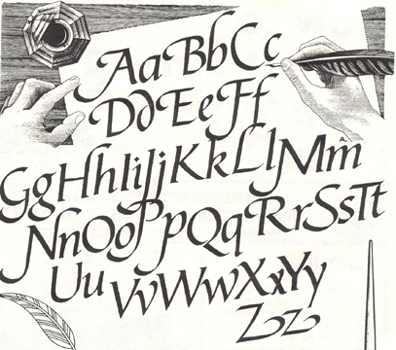 AaBbCc
DdEeFf
GgHhIiJjKkLlMm̂
NnOoPpQqRrSsTt
UuVvWwXxYy
Zz